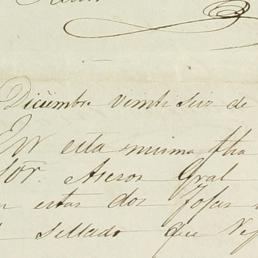 Diciembre veinte seis de
En esta misma fha
Sor. Asesor Gral
estas dos fojas
sellado que